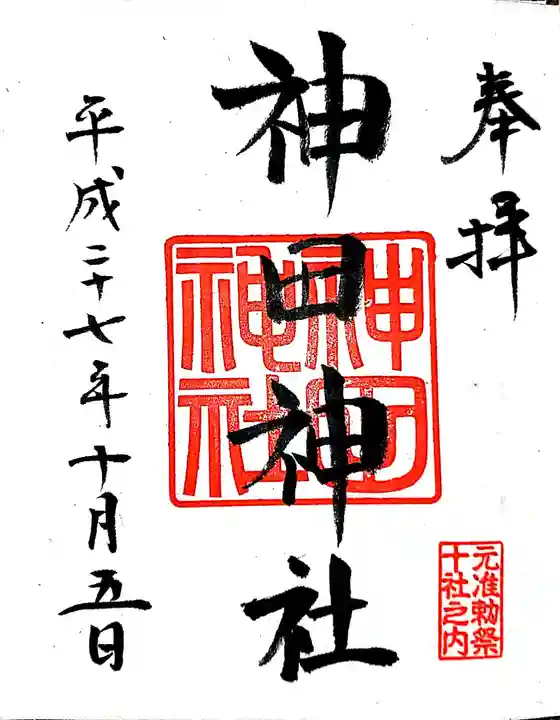 奉拝
神田神社
神田
神社
元准勅祭
十社之内
平成二十七年十月五日